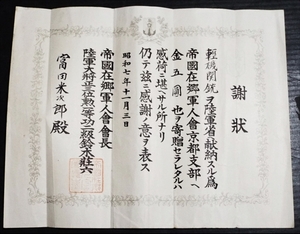 謝狀
輕機関銃ヲ陸軍省ヘ献納スル爲
帝國在郷軍人會京都支部ヘ
金五圓也ヲ寄贈セラレタルハ
感荷ニ堪ヘサル所ナリ
仍テ茲ニ感謝ノ意ヲ表ス
昭和七年十一月三日
帝國在郷軍人會會長
陸軍大將正三位勲一等功三級鈴木莊六
富田米次郎殿